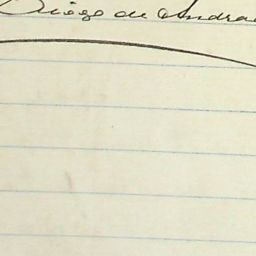 Diogo de Andra